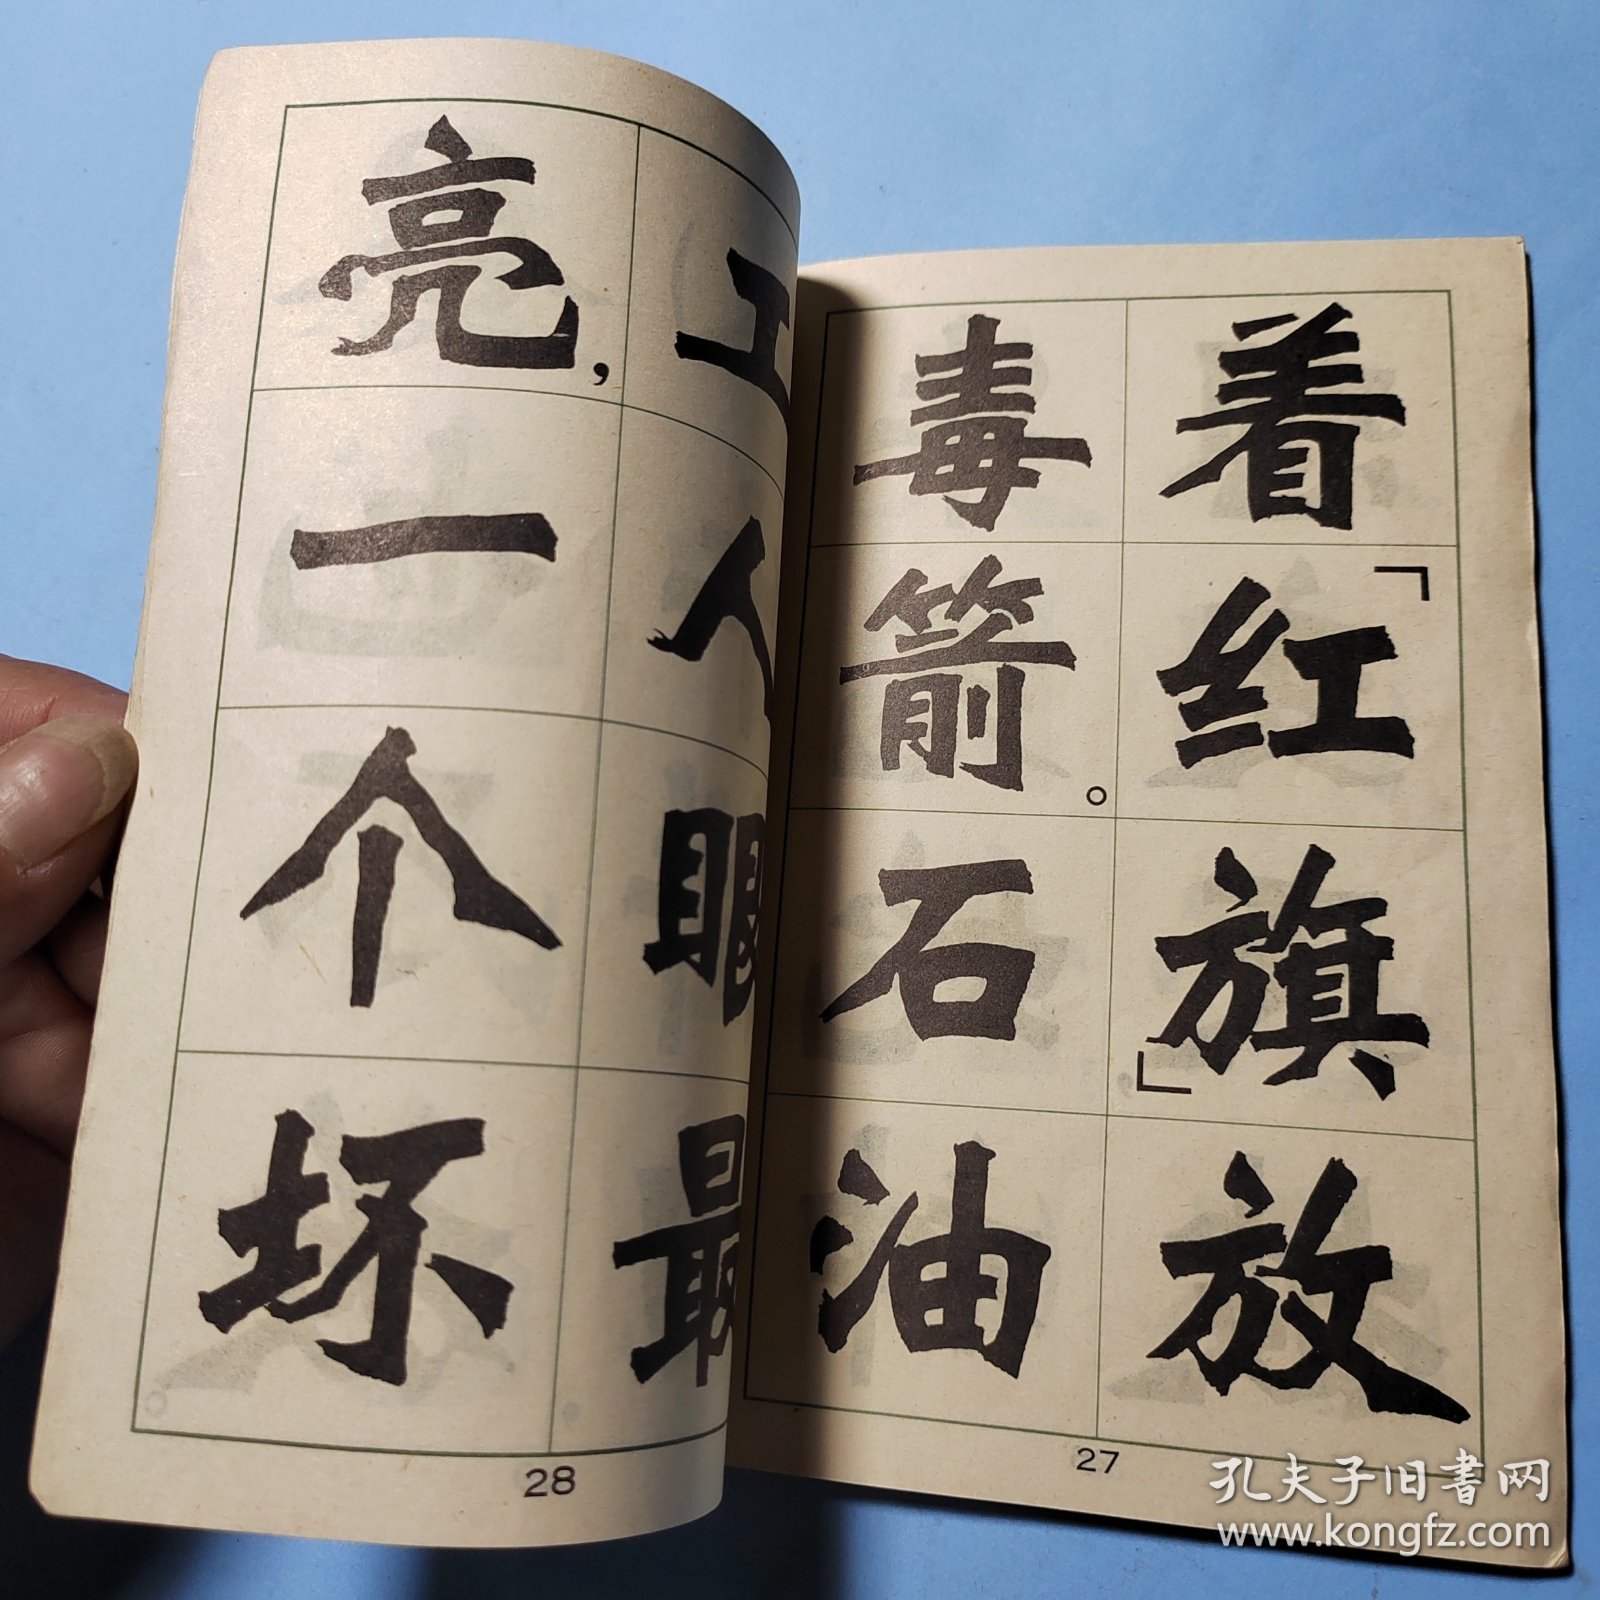 着「红旗」放
毒箭。石油
27
工人眼最
亮,一个坏
28
孔夫子旧书网
www.kongfz.com